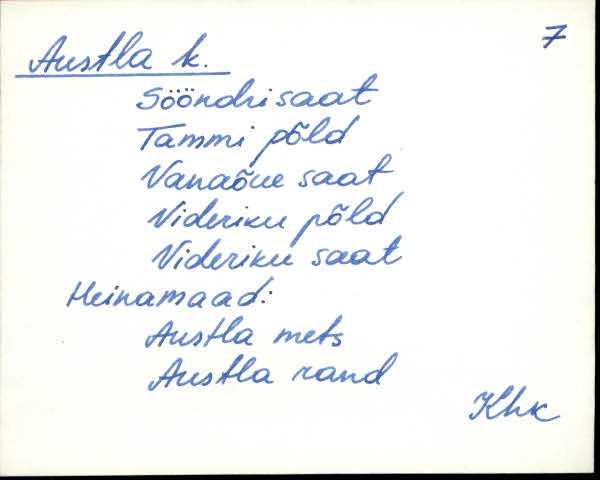 7
Austla k.
Sööndri saat
Tammi põld
Vanaõue saat
Videriku põld
Videriku saat
Heinamaad:
Austla mets
Austla rand
Khk